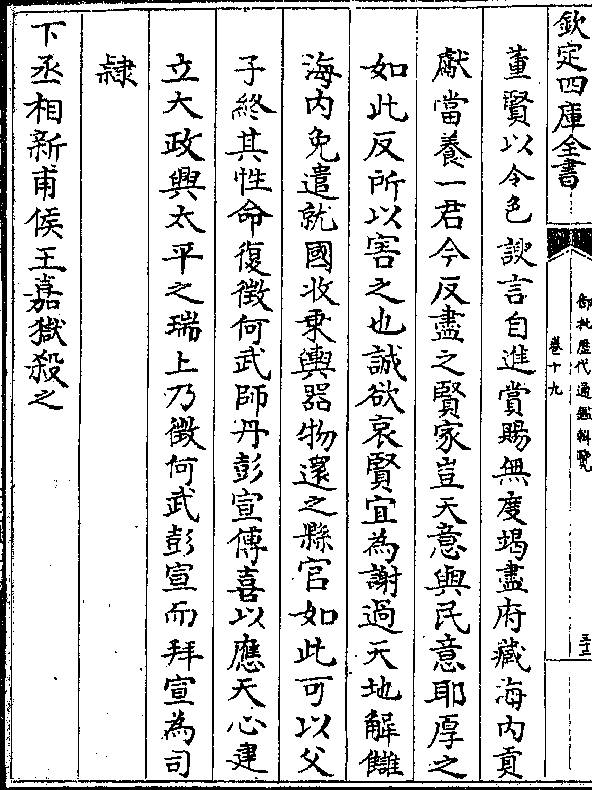 欽定四庫全書
御批歷代通鑑輯覽
卷十九
三十三
董賢以令色諛言自進賞賜無度竭盡府藏海内貢
獻當養一君今反盡之賢家豈天意與民意耶厚之
如此反所以害之也誠欲哀賢宜為謝過天地解讎
海内免遣就國收乗輿器物還之縣官如此可以父
子終其性命復徴何武師丹彭宣傅喜以應天心建
立大政興太平之瑞上乃徴何武彭宣而拜宣為司
隷
下丞相新甫侯王嘉獄殺之